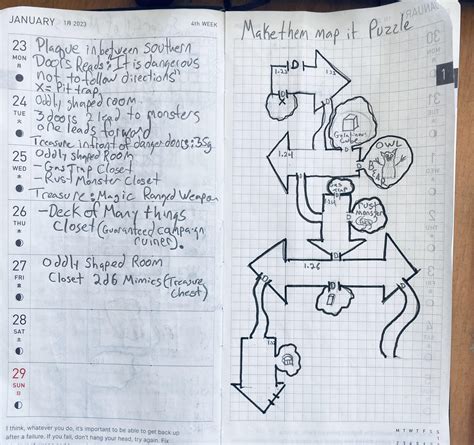 JANUARY 1月 2023 4th WEEK
23 MON 月
Plaque in between Southern
Doors Reads: "It is dangerous
not to follow directions"
X= Pit trap
24 TUE 火
Oddly shaped room
3 doors 2 lead to monsters
one leads forward
Treasure in front of danger doors: 35g
25 WED 水
Oddly Shaped Room
- Gas Trap Closet
- Rust Monster Closet
Treasure: Magic Ranged Weapon
26 THU 木
- Deck of Many things
Closet (Guaranteed campaign
ruiner).
27 FRI 金
Oddly Shaped Room
Closet 2d6 Mimics (Treasure
Chest)
28 SAT 土
29 SUN 日
I think, whatever you do, it's important to be able to get back up
after a failure. If you fall, don't hang your head, try again. Fix
Make them map it Puzzle
1.23
D
X
D
Gelatinous
Cube
1.24
D
D
OWL
BEAR
Gas
trap
D
rust
monster
Egg
D
D
1.26
D
D
D
D
1
M T W T F S S